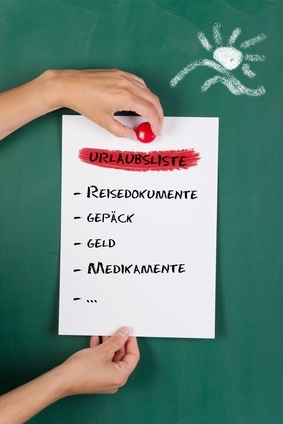 URLAUBSLISTE
- REISEDOKUMENTE
- GEPÄCK
- GELD
- MEDIKAMENTE
- ...